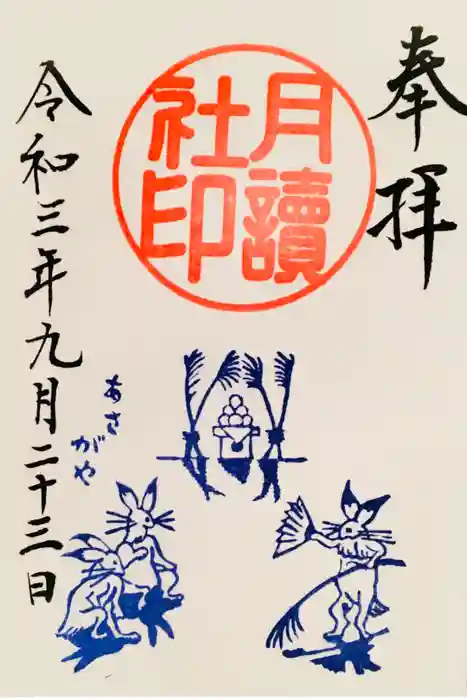 奉拝
月讀
社印
令和三年九月二十三日
あさ
がや